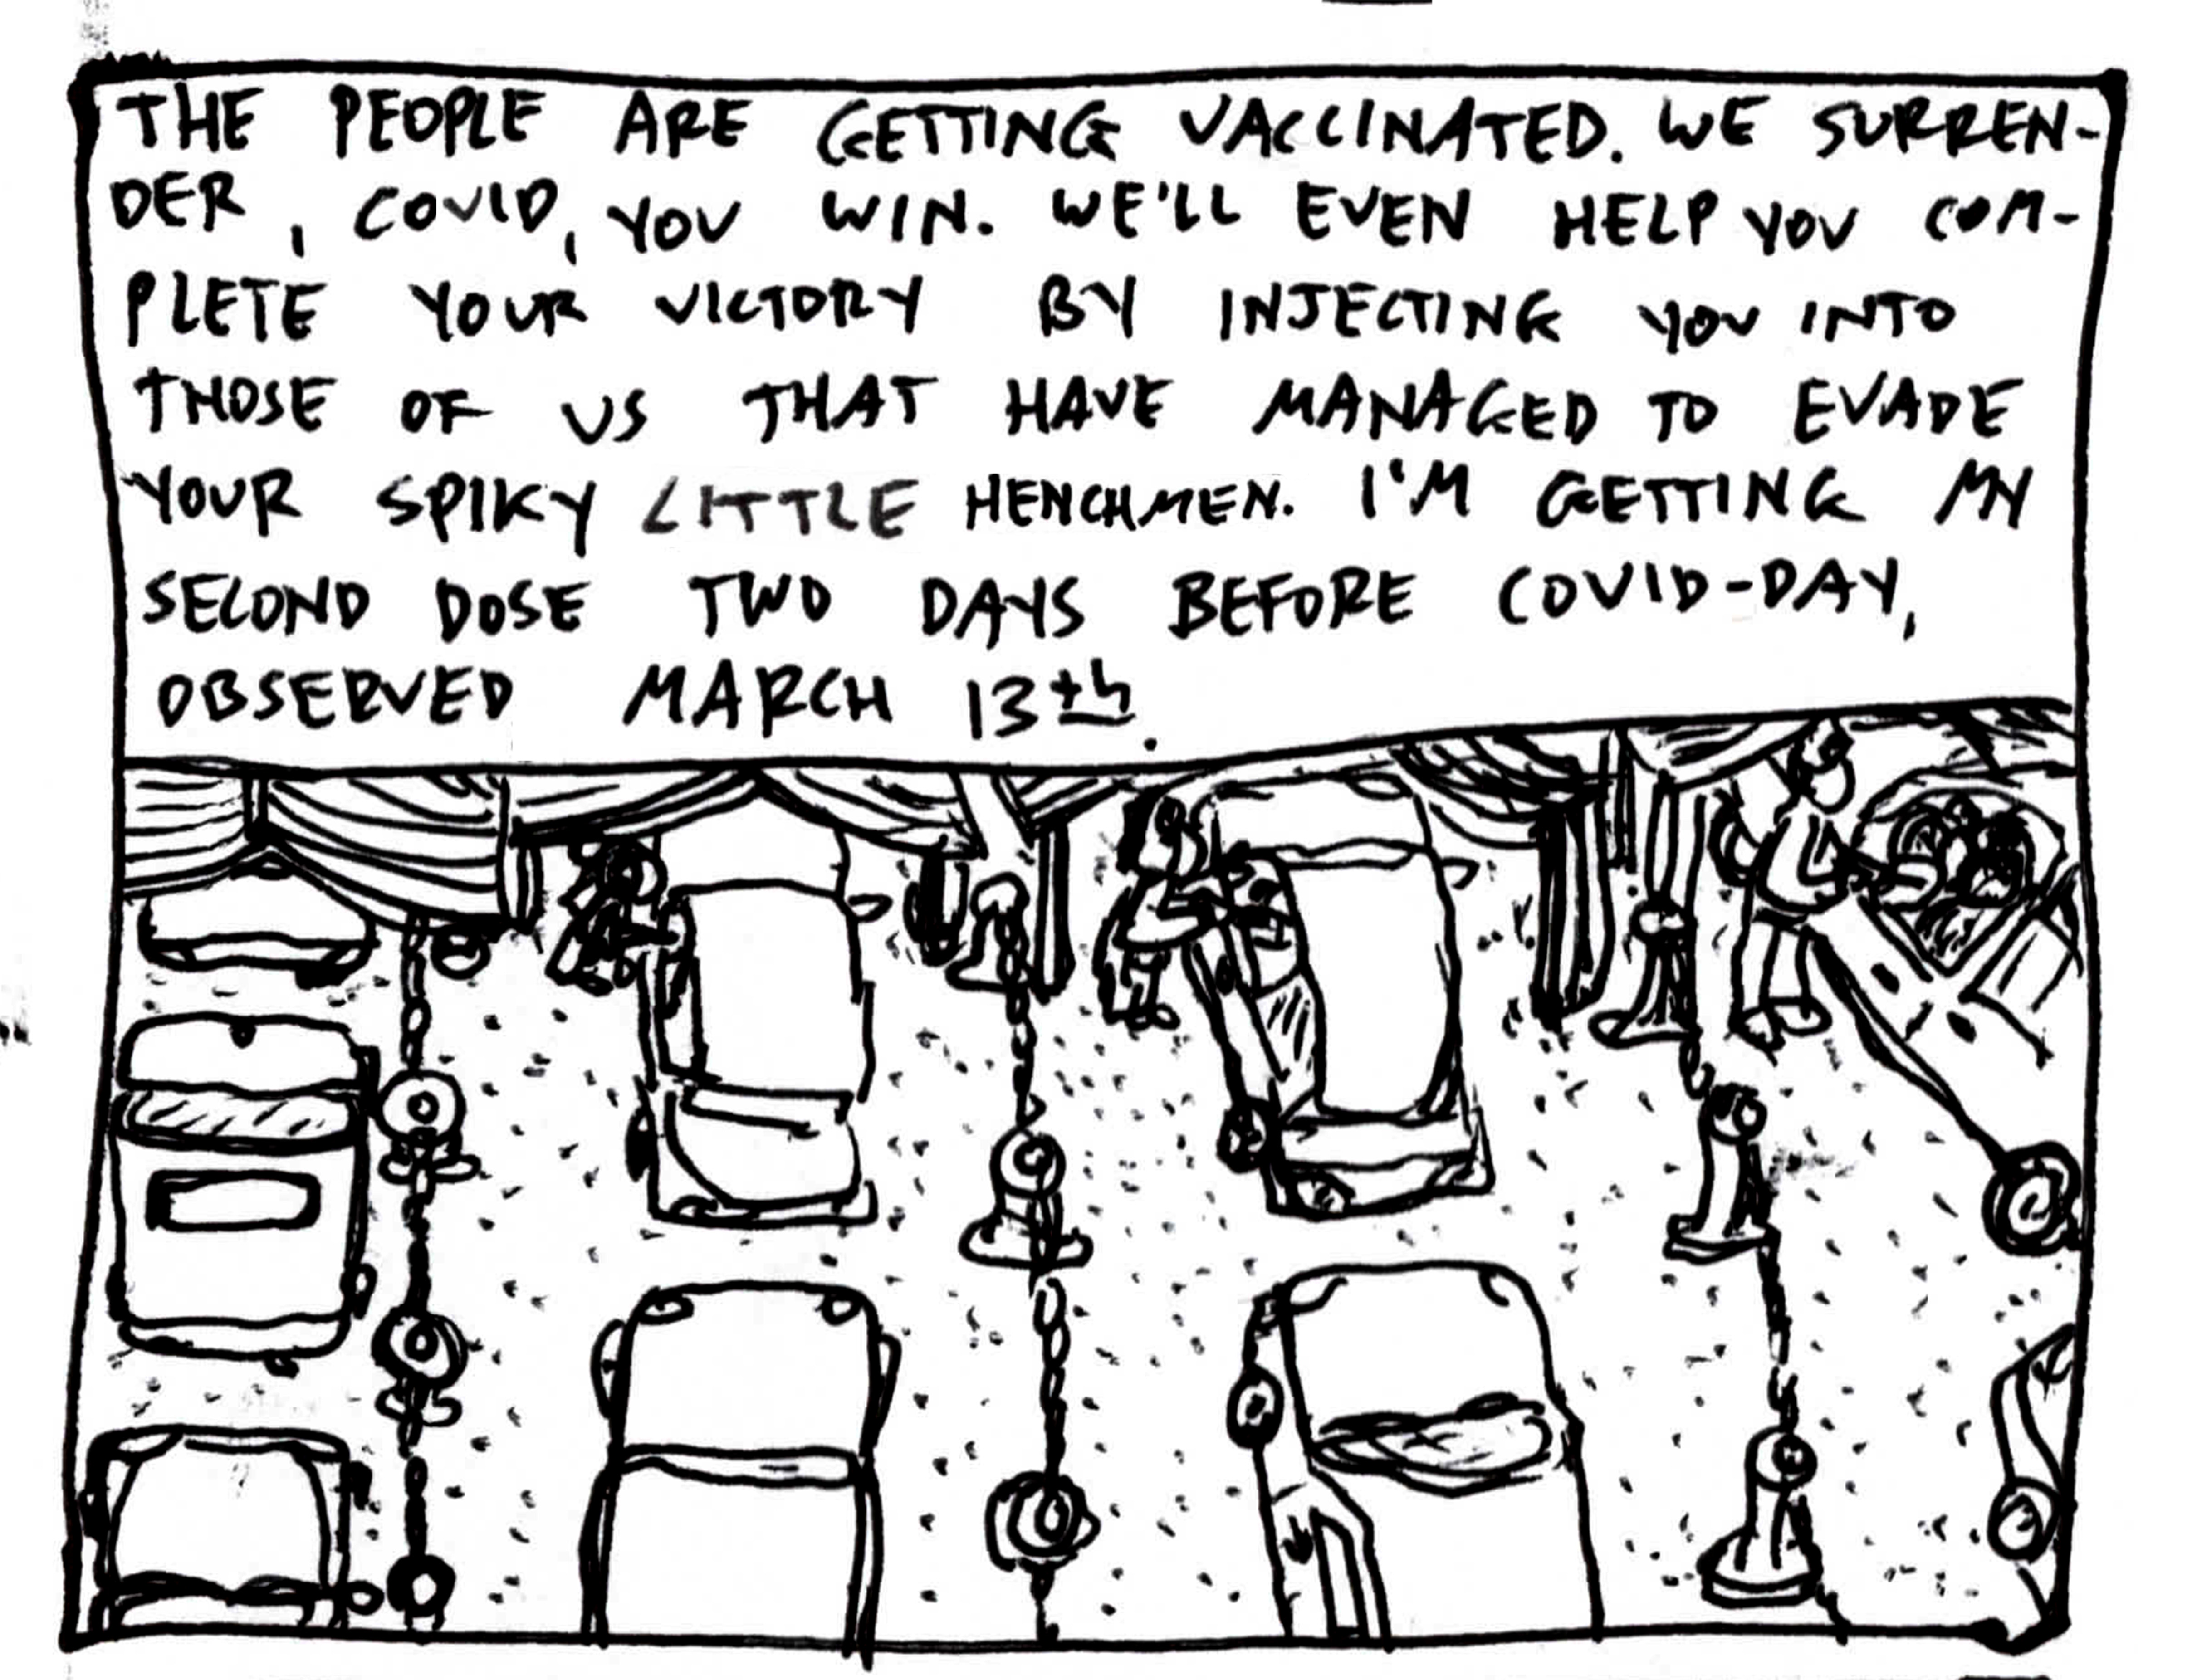 THE PEOPLE ARE GETTING VACCINATED. WE SURREN-
DER, COVID, YOU WIN. WE'LL EVEN HELP YOU COM-
PLETE YOUR VICTORY BY INJECTING YOU INTO
THOSE OF US THAT HAVE MANAGED TO EVADE
YOUR SPIKY LITTLE HENCHMEN. I'M GETTING MY
SECOND DOSE TWO DAYS BEFORE COVID-DAY,
OBSERVED MARCH 13th.